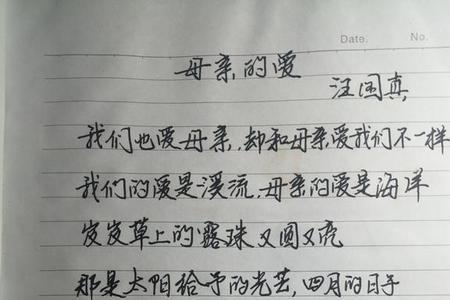 Date.
No.
母亲的爱
汪国真
我们也爱母亲,却和母亲爱我们不一样
我们的爱是溪流,母亲的爱是海洋
芨芨草上的露珠又圆又亮
那是太阳给予的光芒,四月的日子